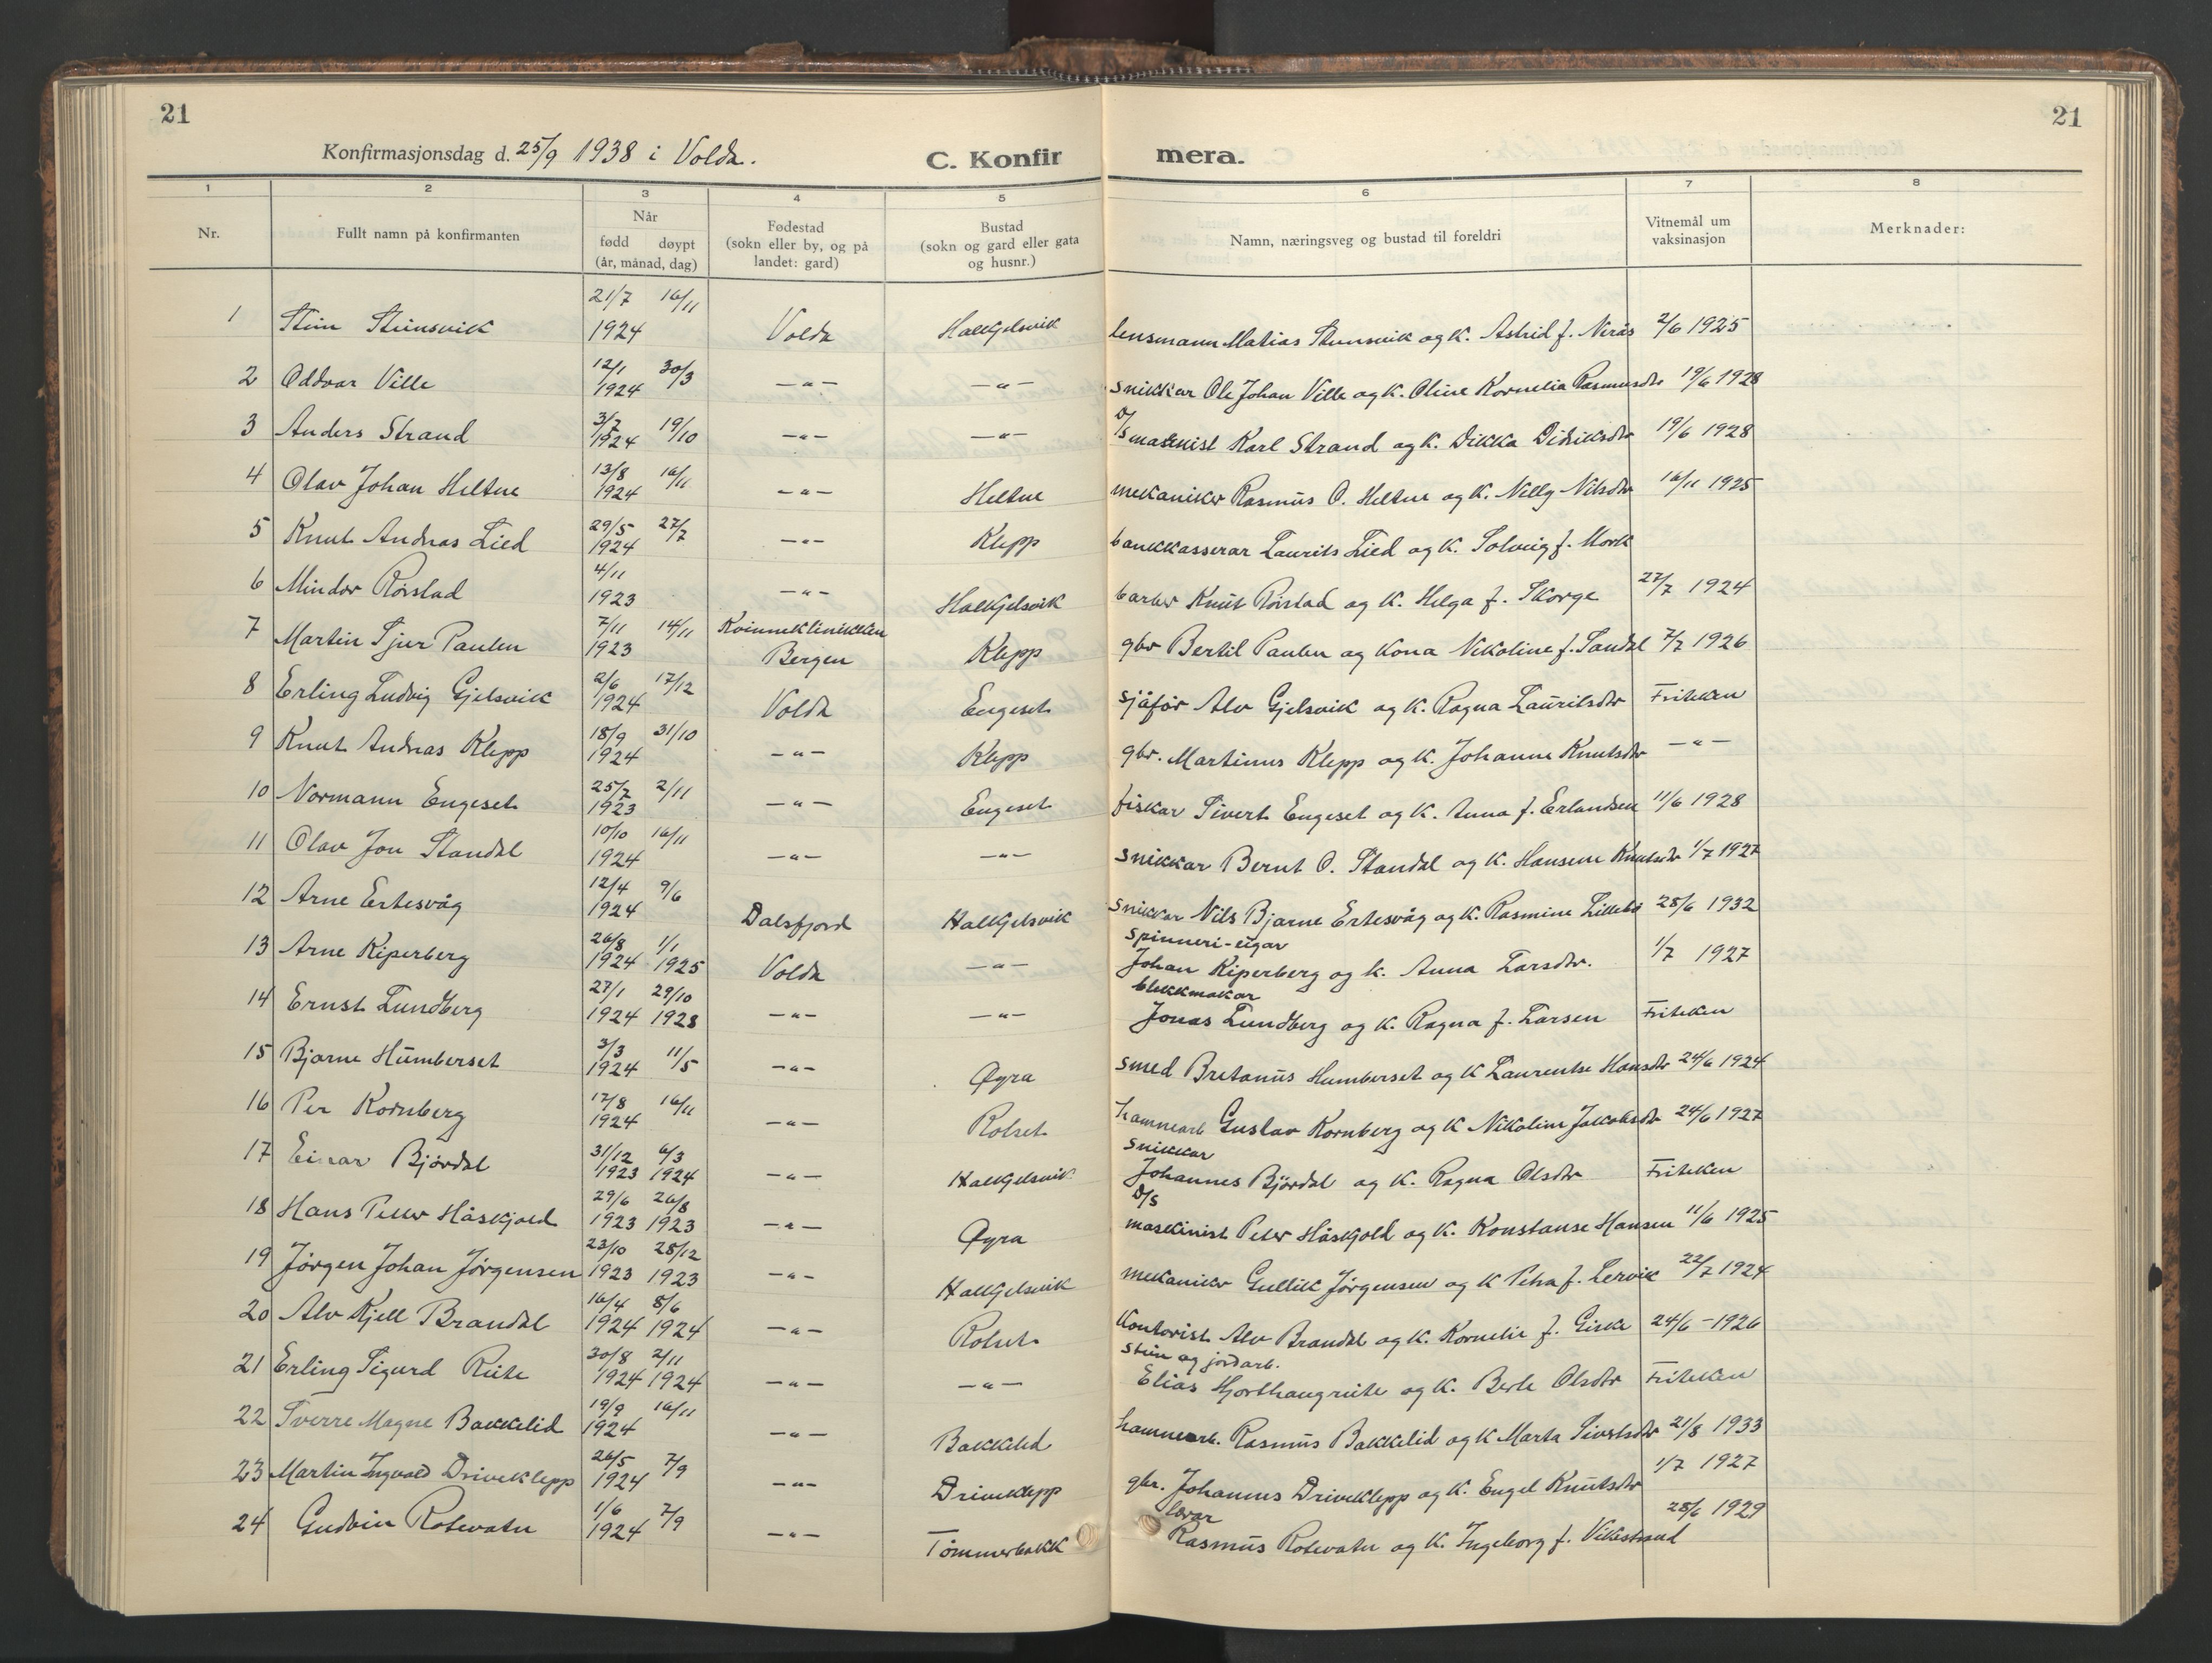 21
21
Konfirmasjonsdag d. 25/9 1938 i Volda.
C. Konfir mera.
1 2 3 4 5 6 7 8
Nr.
Fullt namn på konfirmanten
Når
fødd døypt
(år, månad, dag)
Fødestad
(sokn eller by, og på
landet: gard)
Bustad
(sokn og gard eller gata
og husnr.)
Namn, næringsveg og bustad til foreldri
Vitnemål um
vaksinasjon
Merknader:
1 Stein Steinsvik 21/7 1924 16/11 Volda Halkjelsvik lensmann Matias Steinsvik og k. Astrid f. Nerås 2/6 1925
2 Oddvar Ville 12/1 1924 30/3 —"— —"— snikkar Ole Johan Ville og k. Oline Kornelia Rasmusdtr 19/6 1928
3 Anders Strand 3/7 1924 19/10 —"— —"— D/S maskinist Karl Strand og k. Dikka Didriksdtr 19/6 1928
4 Olav Johan Heltne 13/8 1924 16/11 —"— Heltne mekaniker Rasmus O. Heltne og k. Nelly Nilsdtr 16/11 1925
5 Knut Andreas Lied 29/5 1924 27/7 —"— Klepp bankkasserar Laurits Lied og k. Solveig f. Mork
6 Mindor Rørstad 4/11 1923 —"— Halkjelsvik barber Knut Rørstad og k. Helga f. Skorge 27/7 1924
7 Martin Sjur Paulen 7/11 1923 14/11 Kvinneklinikken Bergen Klepp gbr Bertil Paulen og kona Nikoline f. Sandal 7/7 1926
8 Erling Ludvig Gjelsvik 2/6 1924 17/12 Volda Engeset sjåfør Alv Gjelsvik og k. Ragna Lauritsdtr Friteken
9 Knut Andreas Klepp 18/9 1924 31/10 —"— Klepp gbr. Martinus Klepp og k. Johanne Knutsdtr —"—
10 Normann Engeset 25/7 1923 2/11 —"— Engeset fiskar Sivert Engeset og k. Anna f. Erlandsen 11/6 1928
11 Olav Jon Standal 10/10 1924 16/11 —"— —"— snikkar Bernt O. Standal og k. Hansine Knutsdtr 1/7 1927
12 Arne Ertesvåg 12/4 1924 9/6 Dalsfjord Halkjelsvik snikkar Nils Bjarne Ertesvåg og k. Rasmine Lillebø 28/6 1932
13 Arne Kiperberg 26/8 1924 1/1 1925 Volda —"— spinneri-eigar Johan Kiperberg og k. Anna Larsdtr. 1/7 1927
14 Ernst Lundberg 27/1 1924 29/10 1928 —"— —"— blekkmakar Jonas Lundberg og k. Ragna f. Larsen Friteken
15 Bjarne Humberset 3/3 1924 11/5 —"— Øyra smed Bretanus Humberset og k Laurentse Hansdtr 24/6 1924
16 Per Kornberg 17/8 1924 16/11 —"— Rotset hamnearb Gustav Kornberg og k Nikoline Jakobsdtr 24/6 1927
17 Einar Bjørdal 31/12 1923 6/3 1924 —"— Halkjelsvik snikkar Johannes Bjørdal og k. Ragna Olsdtr Friteken
18 Hans Peter Håskjold 29/6 1923 26/8 1923 —"— Øyra D/S maskinist Peter Håskjold og k. Konstanse Hansen 11/6 1925
19 Jørgen Johan Jørgensen 23/10 1923 28/12 1923 —"— Halkjelsvik mekaniker Gullik Jørgensen og k Petra f. Lervik 22/7 1924
20 Alv Kjell Brandal 16/4 1924 8/6 1924 —"— Rotset kontorist Alv Brandal og k. Kornelie f. Giske 24/6 - 1926
21 Erling Sigurd Reite 30/8 1924 2/11 1924 —"— —"— stein og jordarb. Elias Hjorthaugreite og k. Berte Olsdtr Friteken
22 Sverre Magne Bakkelid 19/9 1924 16/11 —"— Bakkelid hamnearb. Rasmus Bakkelid og k Marta Sivertsdtr 21/8 1933
23 Martin Ingvald Driveklepp 26/5 1924 7/9 —"— Driveklepp gbr. Johannes Driveklepp og k. Engel Knutsdtr 1/7 1927
24 Gudvin Rotevatn 1/6 1924 7/9 —"— Tømmerbakk lærar Rasmus Rotevatn og k. Ingeborg f. Vikestrand 28/6 1929